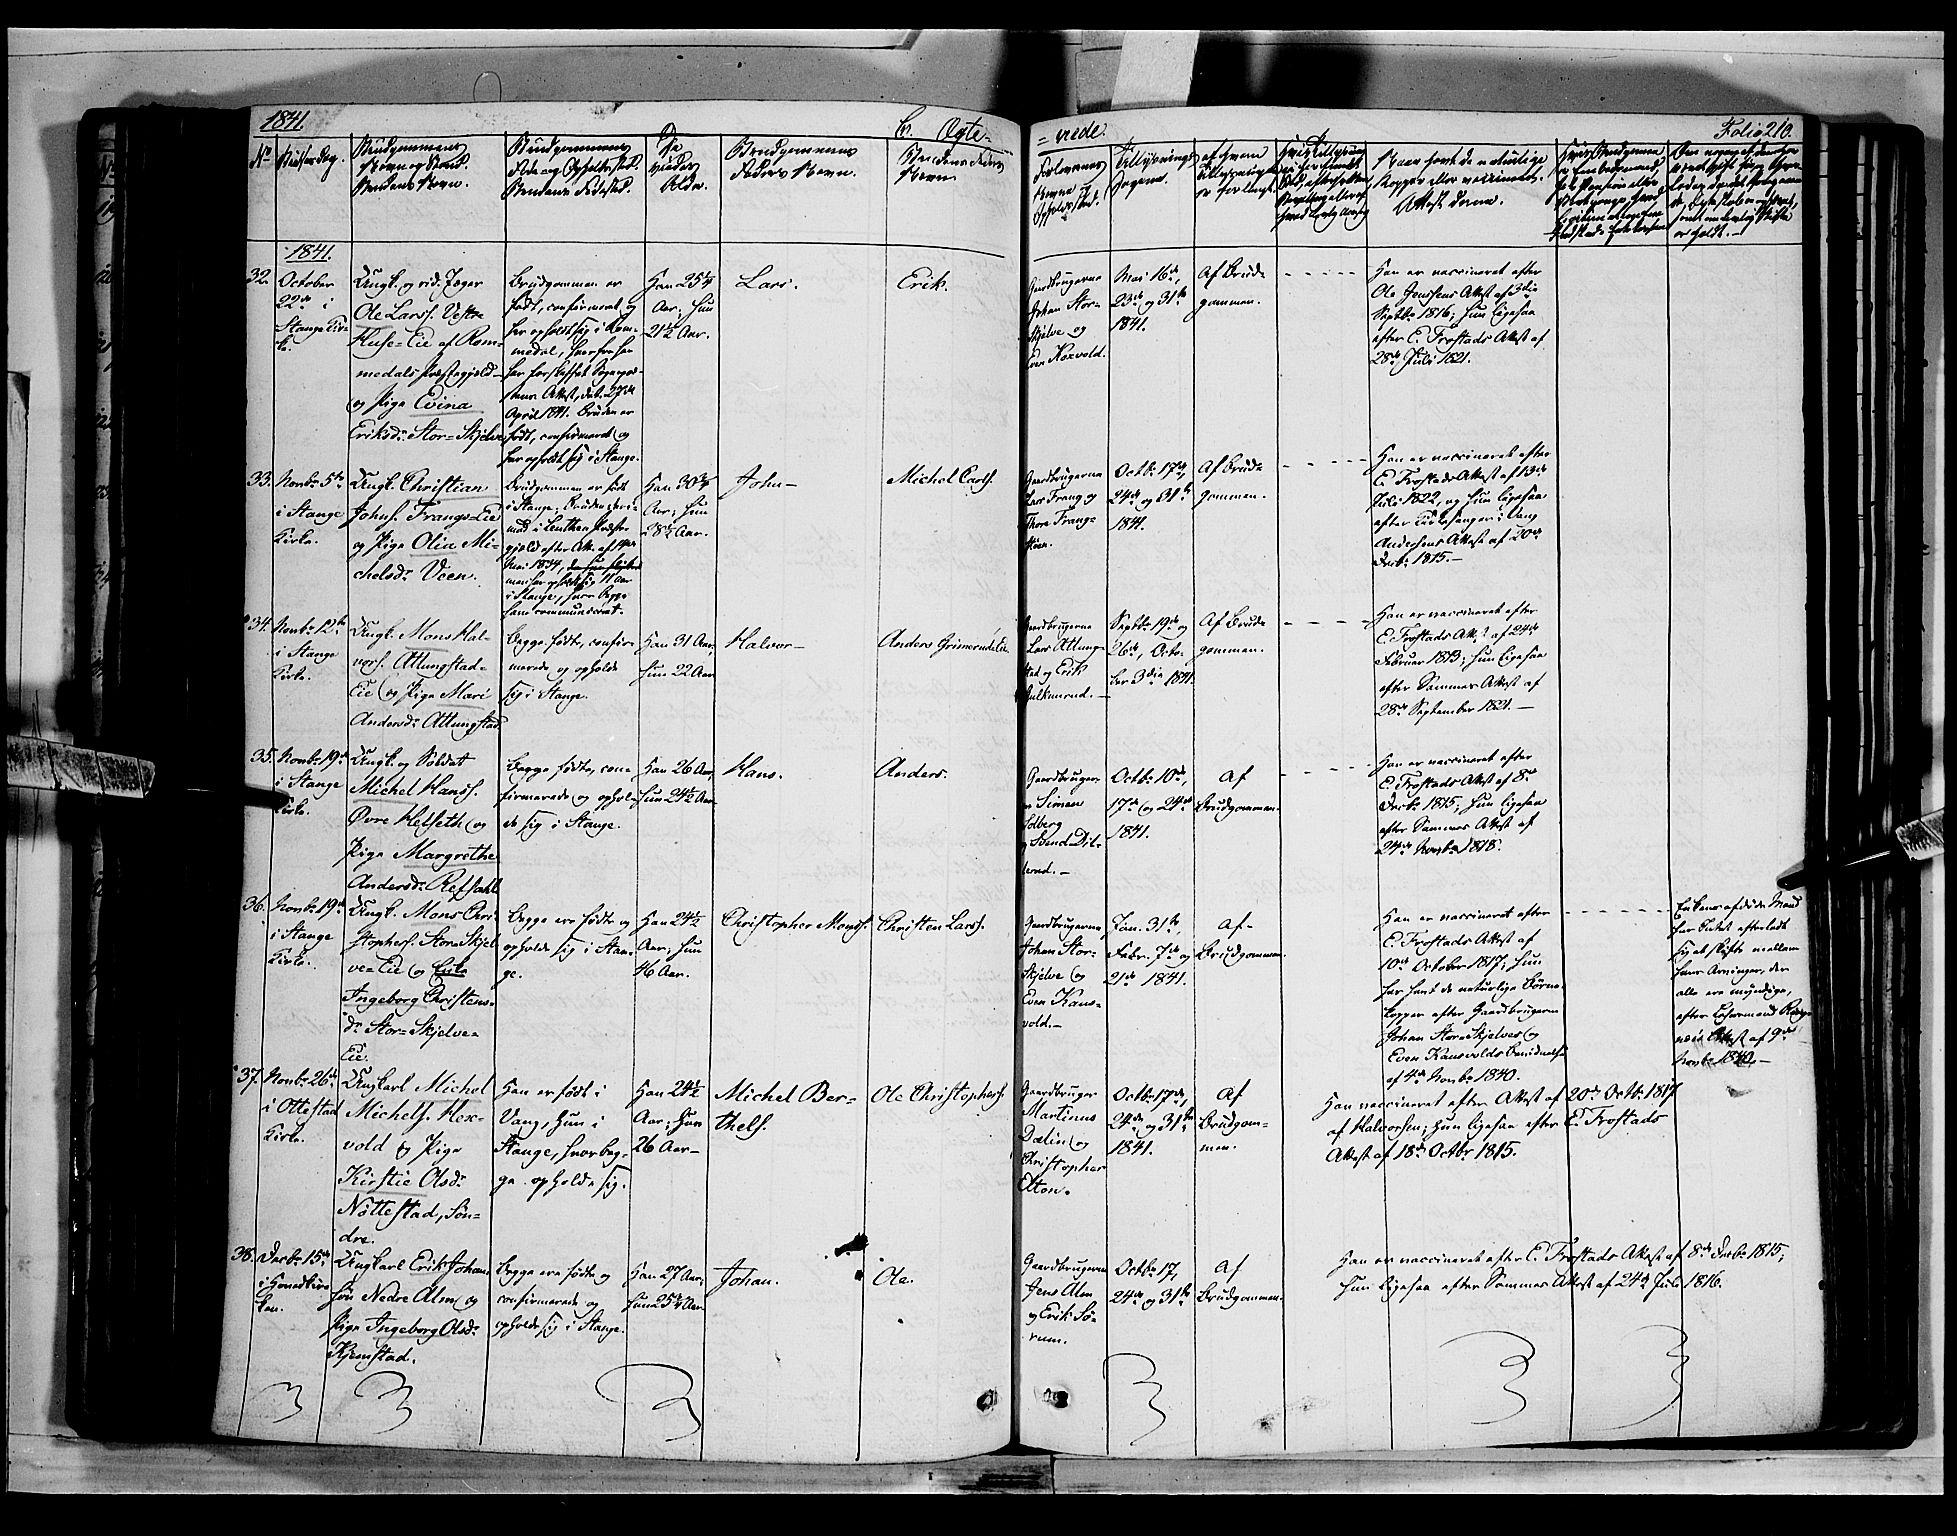 1841.
C. Ægte-
= viede.
Folio 210.
No
Brudgommens
Navn og Stand.
Brudens Navn.
Brudgommens
Føde og Opholdssted.
Brudens Fødested.
De
Viedes
Alder.
Brudgommens
Faders Navn.
Brudens Faders
Navn.
Forlovernes
Navne
Opholdssted.
Tillysnings
Dagene.
af hvem
1841.
32.
October
22de i
Stange Kir-
ke.
Ungk. og rid. Jæger
Ole Larss. Vestre
Huse-Eie af Rom-
medals Præstegjæld
og Pige Evina
Eriksdr Stor=Skjelve
Brudgommen er
født, confirmeret og
har opholdt sig i Rom-
medal, hvorfra han
April 1841. Bruden er
født, confirmeret og
har opholdt sig i Stange.
Han 25¼
Aar; hun
21½ Aar.
Lars.
Erik.
Gaardbrugerne
Johan Stor-
Skjelve og
Even Korvold.
Mai 16de,
23de og 31te
1841.
Af Brud-
gommen.
Han er vaccineret efter
Ole Jenssens Attest af 3die
Septbr 1816; hun ligesaa
efter E. Frostads Attest af
28de Juli 1821.
33.
Novbr 5te
i Stange
Kirke.
Ungk. Christian
Johns. Frangs-Eie
og Pige Olia Mi-
chelsdr Veen.
Brudgommen er født
i Stange; Bruden
i Stange, hvor Begge
have communiceret.
Han 30¾
Aar; hun
28½ Aar.
John-
Michel Carls.
Gaardbrugerne
Lars Frang og
Thore Frang-
Octbr 17de,
24de og 31te
1841.
Af Brud-
gommen.
Han er vaccineret efter
E. Frostads Attest af 13de
Juli 1822, og hun ligesaa
efter Kirkesanger i Vang
Andersens Attest af 20de
Decbr 1815.-
34.
Novbr 12te
i Stange
Kirke.
Ungk. Mons Hal-
vors. Attungstad-
Eie og Pige Mari
Andersdr Attungstad
Begge fødte, confir-
merede og opholde
sig i Stange.
Han 31 Aar,
hun 22 Aar
Halvor-
Anders Grimerud-Eie
Gaardbrugerne
Lars Attung-
stad og Erik
Gulkurud.-
Septbr 19de og
26de, Octo-
ber 3die 1841.
Af Brud-
gommen.
Han er vaccineret efter
E. Frostads Attest af 24de
Februar 1813; hun ligesaa
efter Sammes Attest af
28de September 1821.-
35.
Novbr 19de
i Stange
Kirke.
Ungk. og Soldat
Michel Hanss.
Øvre Helseth og
Pige Margrethe
Andersdr Refsahl
Begge fødte, con-
firmerede og ophol-
de sig i Stange.
Han 26 Aar,
hun 24½ Aar.
Hans.
Anders.
Gaardbruger-
ne Simen
Solberg
og Svend Dil-
lerud.-
Octbr 10de,
17de og 24de
1841.
Af
Brudgommen.
Han er vaccineret efter
E. Frostads Attest af 8de
Decbr 1815; hun ligesaa
efter Sammes Attest af
24de Novbr 1818.
36.
Novbr 19de
i Stange
Kirke.
Ungk. Mons Chri-
stophers. Stor=Skjel-
ve=Eie og Enke
Ingeborg Christens-
dr Stor=Skjelve=
Eie.
Begge ere fødte og
opholde sig i Stan-
ge.
Han 24½
Aar; hun
46 Aar.
Christopher Monss.
Christen Larss.
Gaardbrugerne
Johan Stor-
Skjelve og
Even Kaus-
vold.-
Jan. 31te,
Febr. 7de og
21de 1841.
Af-
Brudgommen.
Han er vaccineret efter
E. Frostads Attest af
10de October 1817; hun
har havt de naturlige Børne-
kopper efter Gaardbrugerne
Johan Stor=Skjelves og
Even Kausvolds Bevidnelse
af 4de Novbr 1840.
Enkens afdøde Mand
har Intet efterladt
sig at skifte mellem
hans Arvinger, der
alle ere myndige,
efter Lensmand
Attest af 9de
Novbr 1840.-
37.
Novbr 26de
i Ottestad
Kirke.
Ungkarl Michel
Michels. Hex-
vold og Pige
Kirstie Olsdr
Nøttestad, Søn-
dre.
Han er født i
Vang, hun i
Stange, hvor beg-
ge opholde sig.
Han 24½
Aar; hun
26 Aar-
Michel Ber-
thels.
Ole Christophers.
Gaardbruger
Martinus
Dælin og
Christopher
Olton.
Octbr 17de,
24de og 31te
1841.
Af
Brudgom-
men.
Han vaccineret efter Attest af 20de Octbr 1817
af Halvorsen; hun ligesaa efter E. Frostads
Attest af 18de Octbr 1815.
38.
Decbr 15de
i Hovedkir-
ken.
Ungkarl Erik Johan-
søn Nedre Alm og
Pige Ingeborg Olsdr
Kjemstad.
Begge ere fødte og
confirmerede og
opholde sig i Stange.
Han 27 Aar;
hun 25¼ Aar.
Johan.
Ole.
Gaardbrugerne
Jens Alm
og Erik Sø-
rum.
Octbr 17,
24de og 31te
Af
Brudgommen.
Han er vaccineret efter E. Frostads Attest af 8de Decbr 1815;
hun ligesaa efter Sammes Attest af 24de Juli 1816.